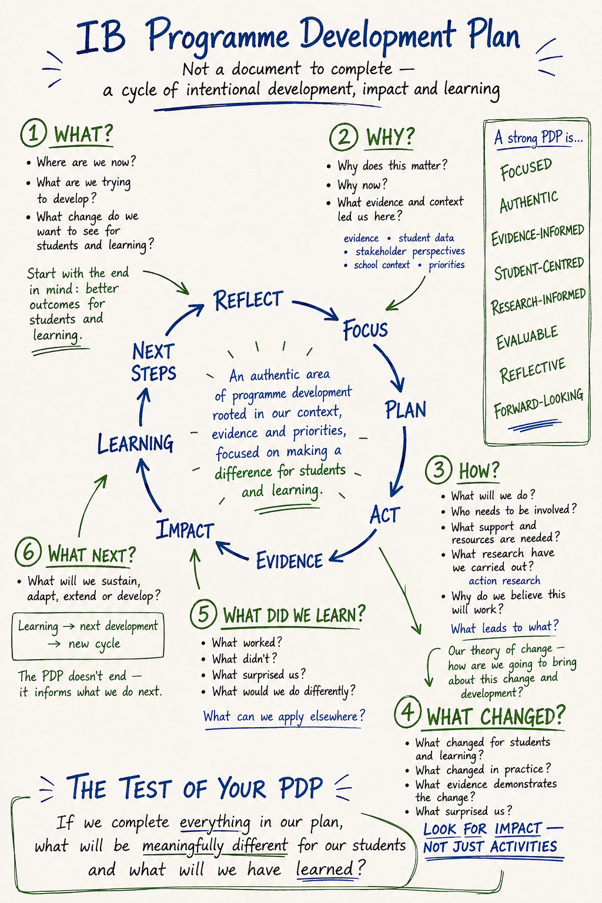 IB Programme Development Plan
Not a document to complete —
a cycle of intentional development, impact and learning
1 WHAT?
• Where are we now?
• What are we trying
to develop?
• What change do we
want to see for
students and learning?
Start with the end
in mind: better
outcomes for
students and
learning.
2 WHY?
• Why does this matter?
• Why now?
• What evidence and context
led us here?
evidence • student data
• stakeholder perspectives
• school context • priorities
A strong PDP is...
FOCUSED
AUTHENTIC
EVIDENCE-INFORMED
STUDENT-CENTRED
RESEARCH-INFORMED
EVALUABLE
REFLECTIVE
FORWARD-LOOKING
REFLECT
FOCUS
PLAN
ACT
EVIDENCE
IMPACT
LEARNING
NEXT
STEPS
An authentic area
of programme development
rooted in our context,
evidence and priorities,
focused on making a
difference for students
and learning.
3 HOW?
• What will we do?
• Who needs to be involved?
• What support and
resources are needed?
• What research have
we carried out?
action research
• Why do we believe this
will work?
What leads to what?
Our theory of change —
how are we going to bring
about this change and
development?
4 WHAT CHANGED?
• What changed for students
and learning?
• What changed in practice?
• What evidence demonstrates
the change?
• What surprised us?
LOOK FOR IMPACT —
NOT JUST ACTIVITIES
5 WHAT DID WE LEARN?
• What worked?
• What didn't?
• What surprised us?
• What would we do differently?
What can we apply elsewhere?
6 WHAT NEXT?
• What will we sustain,
adapt, extend or develop?
Learning → next development
→ new cycle
The PDP doesn't end —
it informs what we do next.
THE TEST OF YOUR PDP
If we complete everything in our plan,
what will be meaningfully different for our students
and what will we have learned?